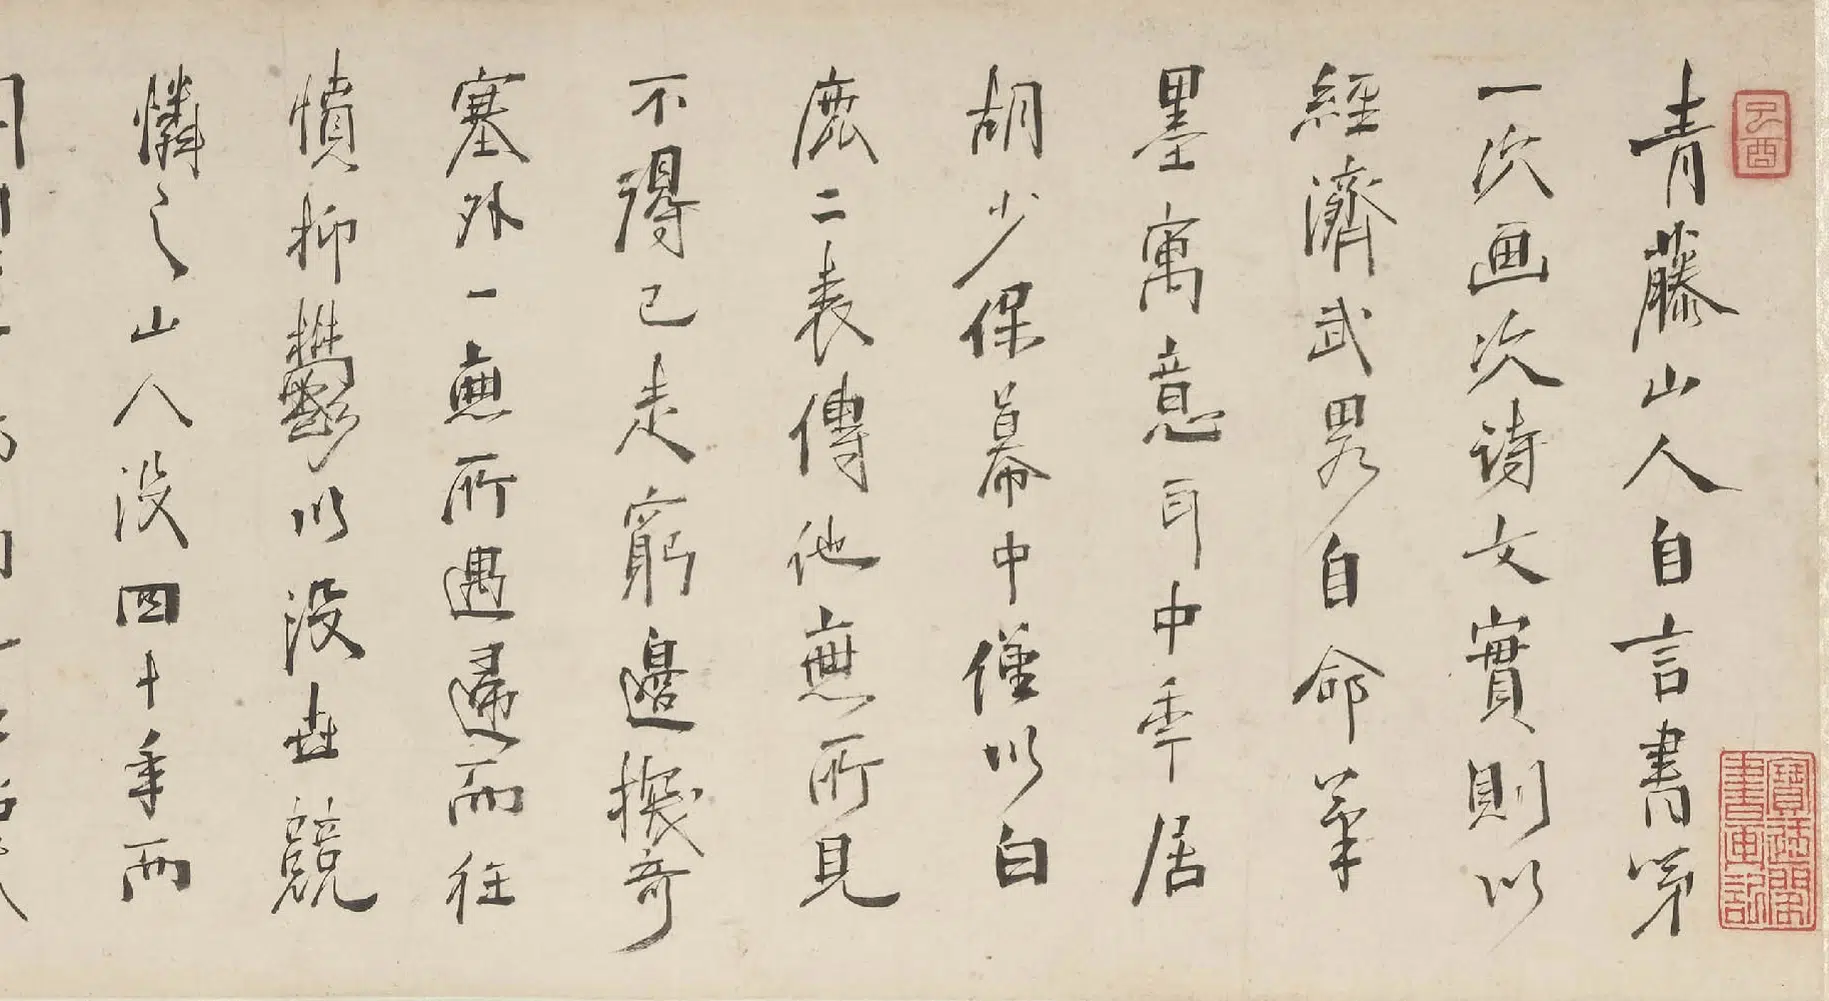 青藤山人自言書第
一次画次詩文實則以
經濟武畧自命筆
墨寓意耳中年居
胡少保幕中僅以白
鹿二表傳他無所見
不得已走窮邊探奇
塞外一無所遇歸而狂
憤抑鬱以没世競
憐之山人没四十年而
己酉
書畫記